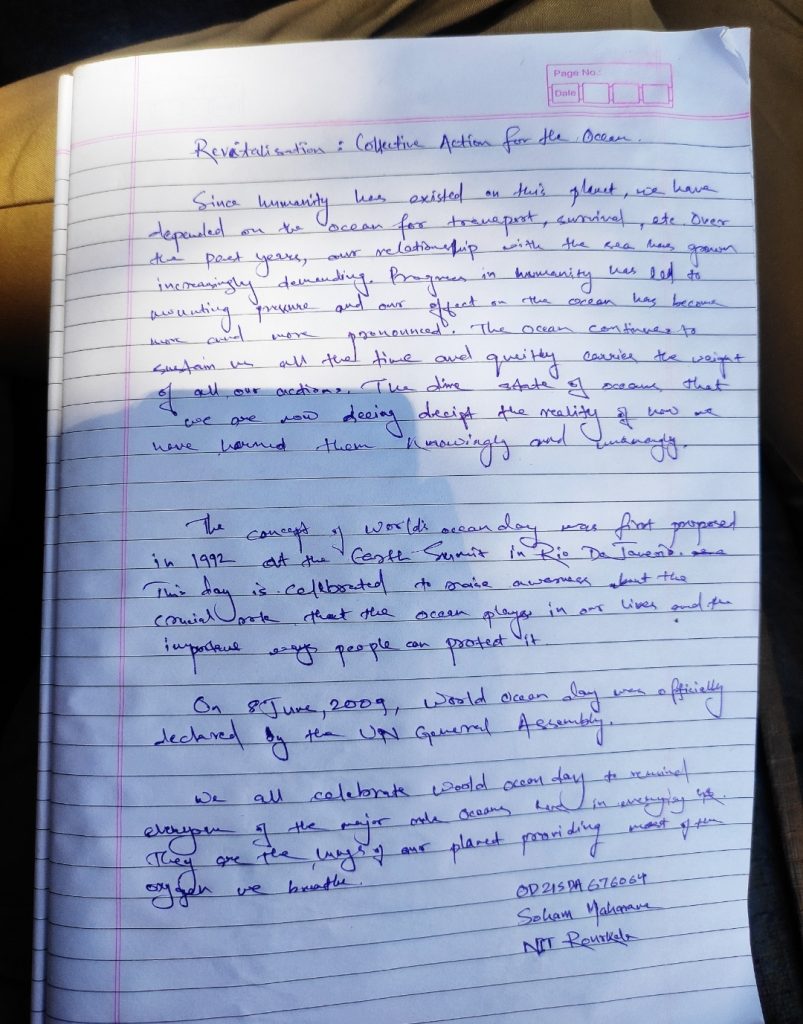 Page No.:
Date
Revitalisation : Collective Action for the Ocean.
Since humanity has existed on this planet, we have
depended on the ocean for transport, survival, etc. Over
the past years, our relationship with the sea has grown
increasingly demanding. Progress in humanity has led to
mounting pressure and our effect on the ocean has become
more and more pronounced. The Ocean continues to
sustain us all the time and queitly carries the weight
of all our actions. The dire state of oceans that
we are now seeing decipt the reality of how we
have harmed them knowingly and
The concept of World's ocean day was first proposed
in 1992 at the Earth Summit in Rio De
This day is celebrated to raise awarness about the
crucial role that the ocean plays in our lives and the
important ways people can protect it.
On 8 June, 2009, World Ocean day was officially
declared by the UN General Assembly.
We all celebrate World ocean day to remind
everyone of the major role oceans have in everyday life.
They are the lungs of our planet providing most of the
oxygen we breathe.
OD21SDA676064
Soham
NIT Rourkela